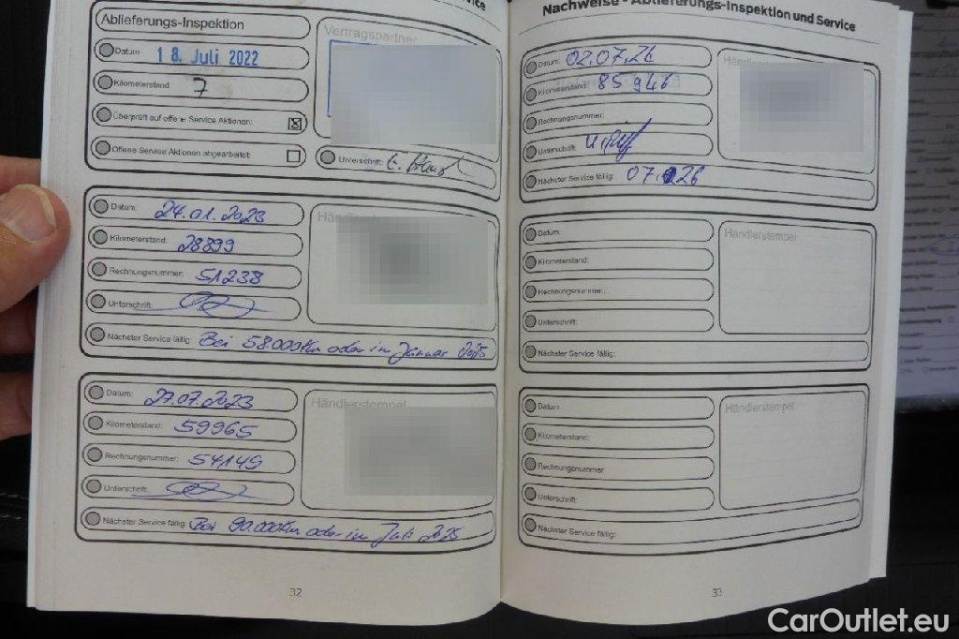 Service
Ablieferungs-Inspektion
Datum: 18. Juli 2022
Kilometerstand: 7
Überprüft auf offene Service Aktionen:
Offene Service Aktionen abgearbeitet:
Vertragspartner
Unterschrift:
Datum: 24.01.2023
Kilometerstand: 28899
Rechnungsnummer: 51238
Unterschrift:
Nächster Service fällig: Bei 58.000km oder im Januar 2025
Händlerstempel
Datum: 27.07.2023
Kilometerstand: 59965
Rechnungsnummer: 54149
Unterschrift:
Nächster Service fällig: Bei 90.000km oder im Juli 2025
Händlerstempel
32
Nachweise - Ablieferungs-Inspektion und Service
Datum: 02.07.26
Kilometerstand: 85946
Rechnungsnummer:
Unterschrift:
Nächster Service fällig: 07.26
Datum:
Kilometerstand:
Rechnungsnummer:
Unterschrift:
Nächster Service fällig:
Händlerstempel
Datum:
Kilometerstand:
Rechnungsnummer:
Unterschrift:
Nächster Service fällig:
Händlerstempel
33
CarOutlet.eu